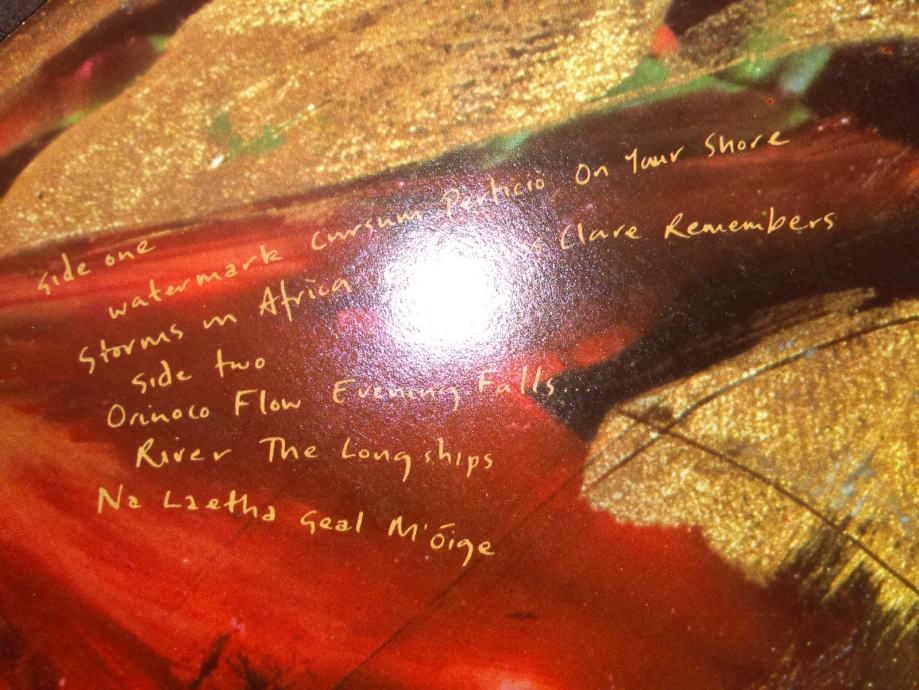 side one
watermark Cursum Perficio On Your Shore
Storms in Africa Clare Remembers
side two
Orinoco Flow Evening Falls...
River The Longships
Na Laetha Geal M'óige